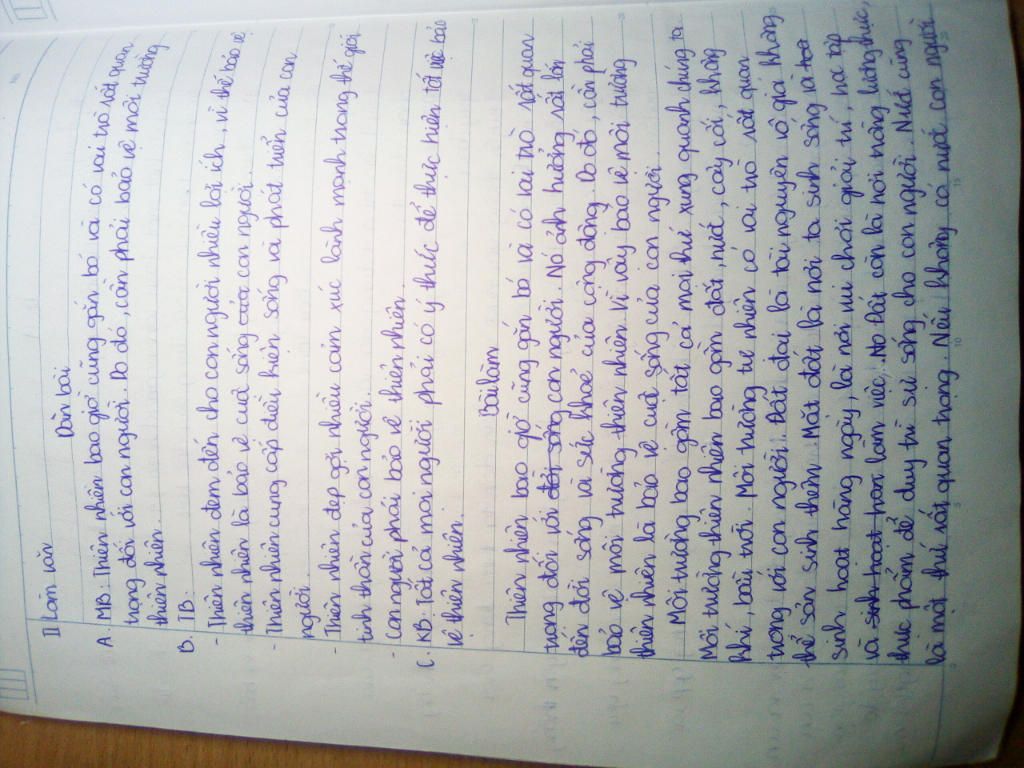 II Làm văn
Dàn bài
A. MB: Thiên nhiên bao giờ cũng gắn bó và có vai trò rất quan
trọng đối với con người. Do đó, cần phải bảo vệ môi trường
thiên nhiên.
B. TB:
- Thiên nhiên đem đến cho con người nhiều lợi ích, vì thế bảo vệ
thiên nhiên là bảo vệ cuộc sống của con người.
- Thiên nhiên cung cấp điều kiện sống và phát triển của con
người.
- Thiên nhiên đẹp gợi nhiều cảm xúc lành mạnh trong thế giới
tinh thần của con người.
- Con người phải bảo vệ thiên nhiên
C. KB: Tất cả mọi người phải có ý thức để thực hiện tốt bảo
vệ thiên nhiên.
Bài làm
Thiên nhiên bao giờ cũng gắn bó và có vai trò rất quan
trọng đối với đời sống con người. Nó ảnh hưởng rất lớn
đến đời sống và sức khoẻ của cộng đồng. Do đó, cần phải
bảo vệ môi trường thiên nhiên vì vậy bảo vệ môi trường
thiên nhiên là bảo vệ cuộc sống của con người.
Môi trường bao gồm tất cả mọi thứ xung quanh chúng ta.
Môi trường thiên nhiên bao gồm đất, nước, cây cối, không
khí, bầu trời. Môi trường tự nhiên có vai trò rất quan
trọng với con người. Đất đai là tài nguyên vô giá không
thể sản sinh thêm. Mặt đất là nơi ta sinh sống và
sinh hoạt hằng ngày, là nơi vui chơi giải trí, học tập
và sinh hoạt làm việc. Nó Đất còn là nơi trồng lương thực,
thực phẩm để duy trì sự sống cho con người. Nước cũng
là một thứ rất quan trọng. Nếu không có nước con người